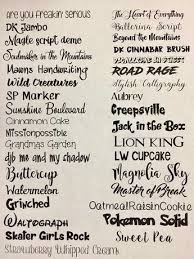 are you freakin' serious
DK Jambo
Magie script demo
Soulmaker in the Mountains
Mawns Handwriting
Wild Creatures
SP Marker
Sunshine Boulevard
Cinnamon Cake
Missionpossible
Grandmas Garden
djb me and my shadow
Buttercup
Watermelon
Grinched
Waltograph
Skater Girls Rock
Strawberry Whipped Cream
The Heart of Everything
Ballerina Script
Beyond the Mountains
DK CINNABAR BRUSH
ROAD RAGE
Stylish Calligraphy
Aubrey
Creepsville
Jack in the Box
LION KING
LW CUPCAKE
Magnolia Sky
Master of Break
OatmealRaisinCookie
Pokemon Solid
Sweet Pea